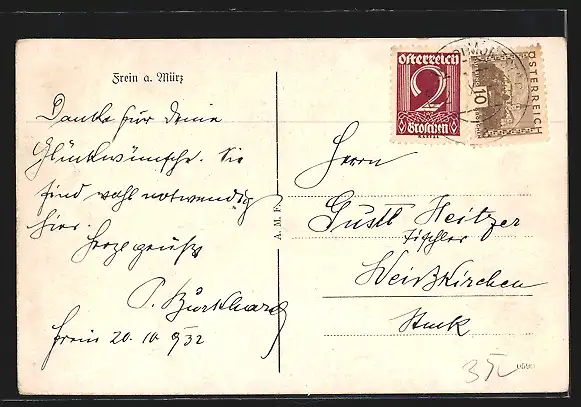 Frein a. Mürz
Danke für Deine
Glückwünsche. Sie
sind wohl notwendig
hier.
Herzegrüße
P. Burkhard
Frein 20. 10. 932
A. M. F.
Österreich
2
Groschen
ÖSTERREICH
10
Herrn
Gustl Heitzer
Tischler
Weißkirchen
0590